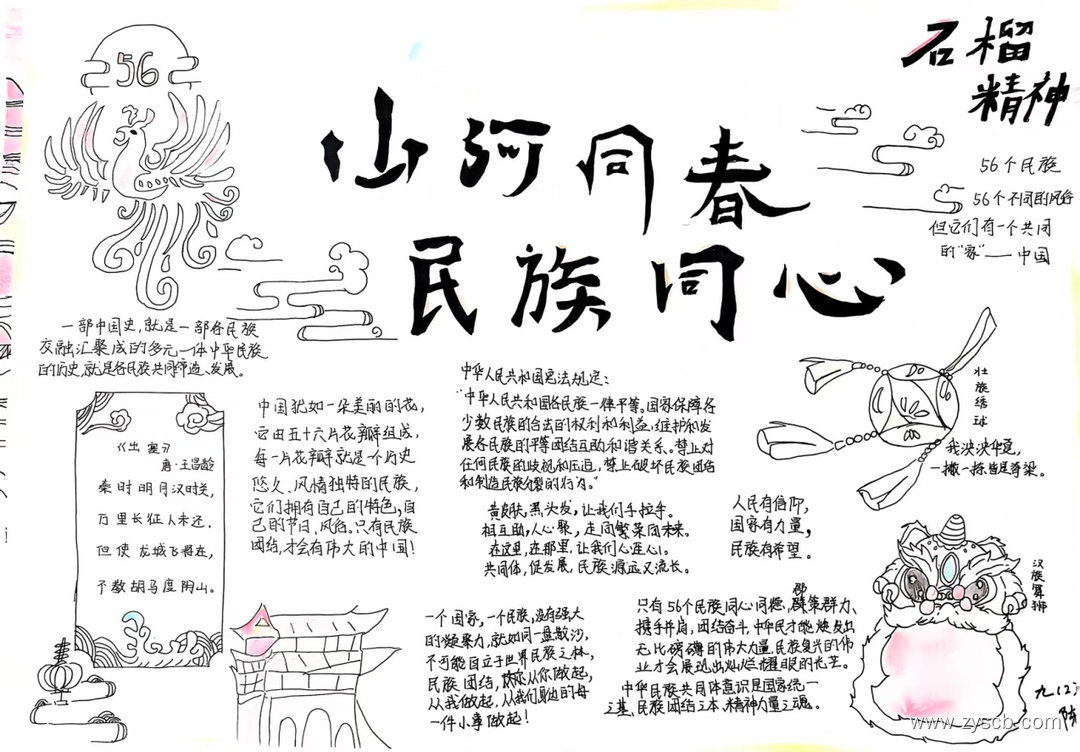 56
石榴
精神
山河同春
民族同心
56个民族
56个不同的风俗
但它们有一个共同
的“家”——中国
一部中国史,就是一部各民族
交融汇聚成的多元一体中华民族
的历史,就是各民族共同缔造、发展、
《出塞》
唐·王昌龄
秦时明月汉时关,
万里长征人未还.
但使龙城飞将在,
不教胡马度阴山。
中国犹如一朵美丽的花,
它由五十六片花瓣组成,
每一片花瓣就是一个历史
悠久、风情独特的民族,
它们拥有自己的特色,自
己的节日、风俗.只有民族
团结,才会有伟大的中国!
中华人民共和国宪法规定:
“中华人民共和国各民族一律平等。国家保障各
少数民族的合法的权利和利益,维护和发
展各民族的平等团结互助和谐关系。禁止对
任何民族的歧视和压迫,禁止破坏民族团结
和制造民族分裂的行为。”
黄皮肤,黑头发,让我们手拉手。
相互助,人心聚,走向繁荣向未来。
在这里,在那里,让我们心连心。
共同体,促发展,民族源远又流长。
人民有信仰,
国家有力量,
民族有希望。
壮族绣球
我泱泱华夏,
一撇一捺皆是脊梁。
汉族舞狮
一个国家,一个民族,没有强大
的凝聚力,就如同一盘散沙,
不可能自立于世界民族之林,
民族团结,你从你做起,
从我做起,从我们身边的每
一件小事做起!
只有56个民族同心同德,群策群力、
携手并肩,团结奋斗,中华民才能焕发出
无比磅礴的伟大力量,民族复兴的伟
业才会展现出灿烂耀眼的光芒。
中华民族共同体意识是国家统一
之基、民族团结之本、精神力量之魂。
九(2)
陈
www.zyscb.com